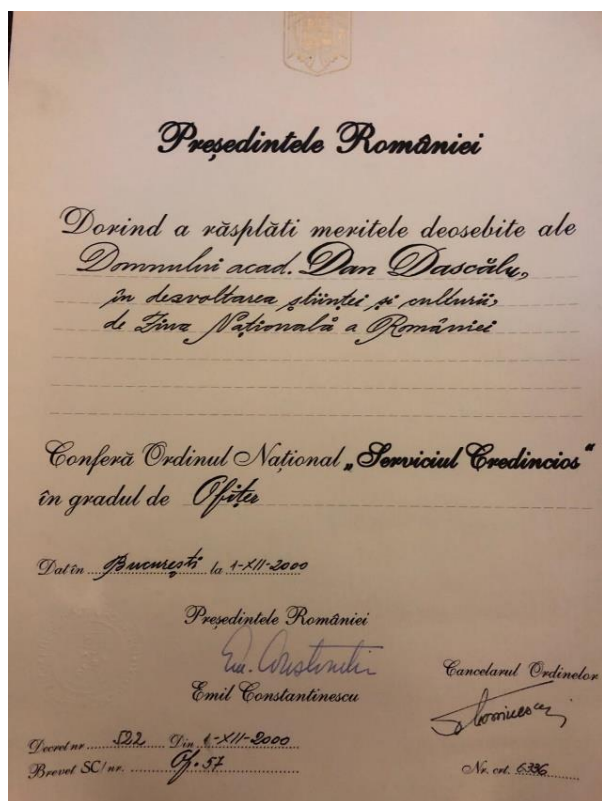 Președintele României
Dorind a răsplăti meritele deosebite ale
Domnului acad. Dan Dascălu,
în dezvoltarea științei și culturii,
de Ziua Națională a României
Conferă Ordinul Național „Serviciul Credincios“
în gradul de Ofițer
Dat în București la 1-XII-2000
Președintele României
Em. Constantinescu
Emil Constantinescu
Cancelarul Ordinelor
Decret nr. 522 Din 1-XII-2000
Brevet SC/nr. Of. 57
Nr. crt. 6336